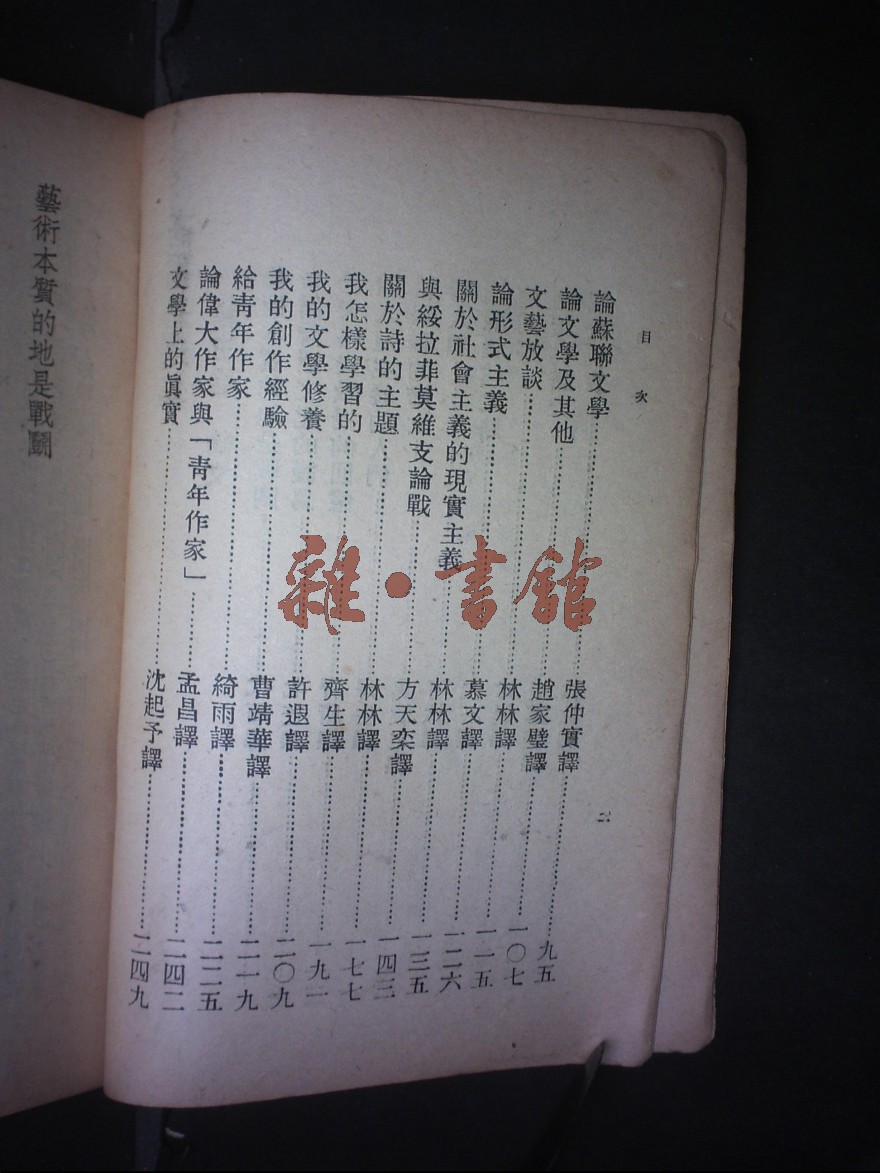 目次
二
論蘇聯文學⋯⋯張仲實譯⋯⋯九五
論文學及其他⋯⋯趙家璧譯⋯⋯一〇七
文藝放談⋯⋯林林譯⋯⋯一一五
論形式主義⋯⋯慕文譯⋯⋯一二六
關於社會主義的現實主義⋯⋯林林譯⋯⋯一三五
與綏拉菲莫維支論戰⋯⋯方天栾譯⋯⋯一四三
關於詩的主題⋯⋯林林譯⋯⋯一七七
我怎樣學習的⋯⋯齊生譯⋯⋯一九一
我的文學修養⋯⋯許遐譯⋯⋯二〇九
我的創作經驗⋯⋯曹靖華譯⋯⋯二一九
給青年作家⋯⋯綺雨譯⋯⋯二二五
論偉大作家與「青年作家」⋯⋯孟昌譯⋯⋯二四二
文學上的眞實⋯⋯沈起予譯⋯⋯二四九
藝術本質的地是戰鬭
雜·書館